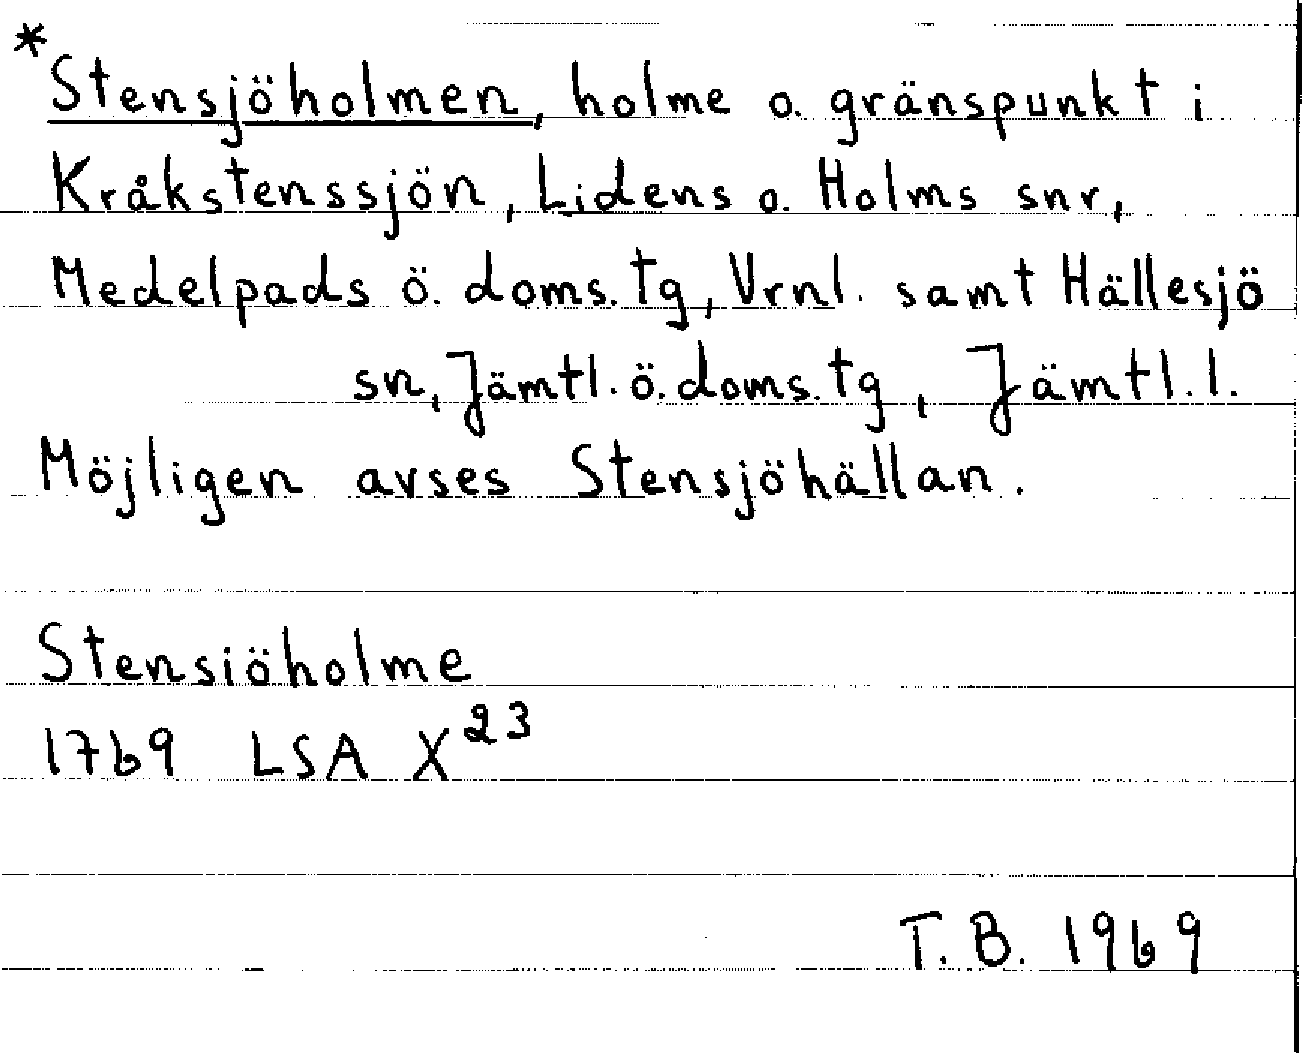 *Stensjöholmen, holme o. gränspunkt i
Kråkstenssjön, Lidens o. Holms snr,
Medelpads ö. doms. tg, Vrnl. samt Hällesjö
sn, Jämtl. ö. doms. tg, Jämtl. l.
Möjligen avses Stensjöhällan.
Stensiöholme
1769 LSA X²³
T.B. 1969